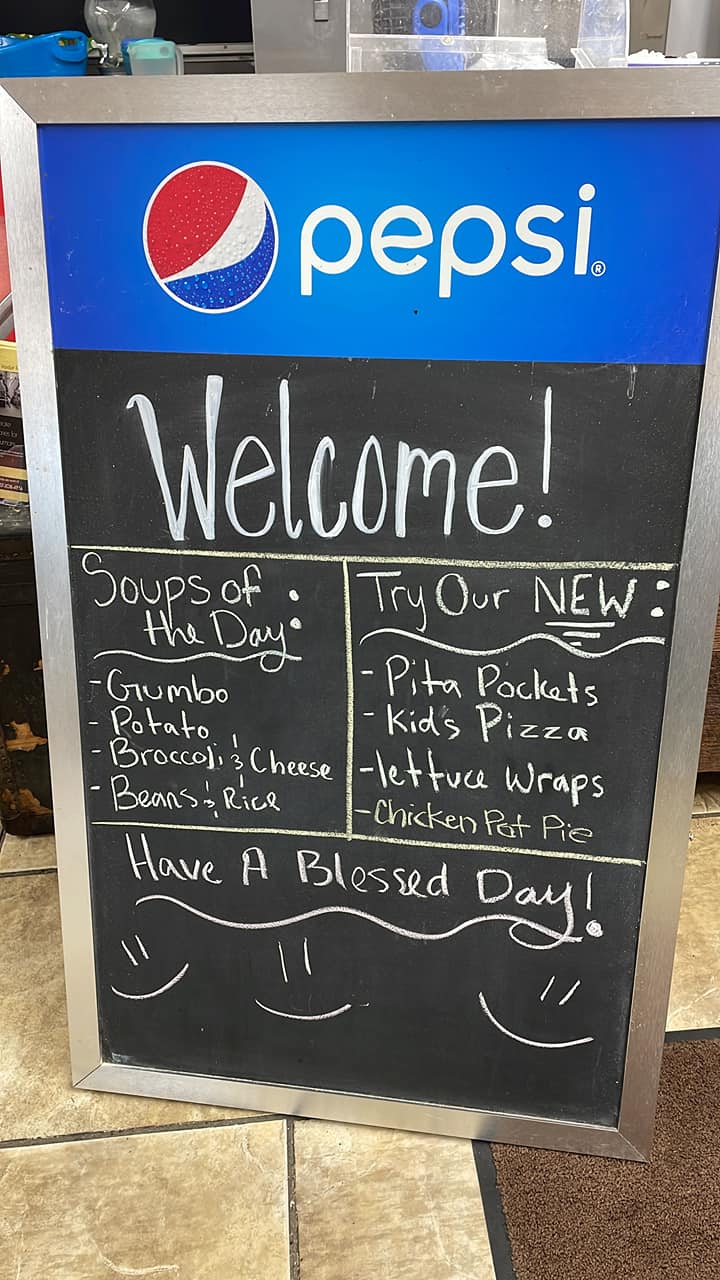 pepsi®
Welcome!
Soups of
the Day:
- Gumbo
- Potato
- Broccoli & Cheese
- Beans & Rice
Try Our NEW:
- Pita Pockets
- Kid's Pizza
- lettuce Wraps
- Chicken Pot Pie
Have A Blessed Day!